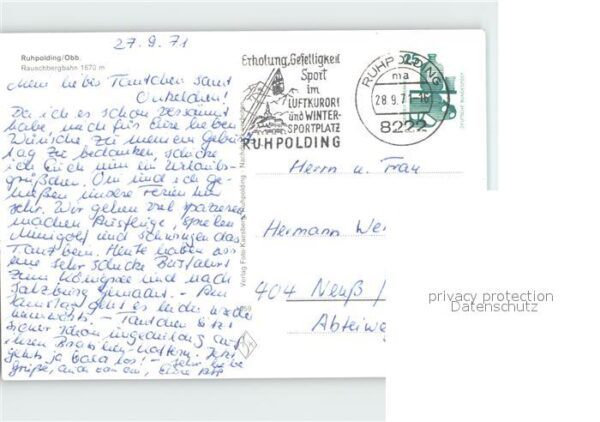 27.9.71
Ruhpolding/Obb.
Rauschbergbahn 1670 m
Mein liebes Tantchen samt
Onkelchen!
Da ich es schon versäumt
habe, mich für Eure lieben
Wünsche zu meinem Geburts
tag zu bedanken, schicke
ich Euch nun ein Urlaubs-
grüßchen. Omi und ich ge-
nießen unsere Ferien hier
sehr. Wir gehen viel spazieren
machen Ausflüge, spielen
Minigolf und schwingen das
Tanzbein. Heute haben wir
eine sehr schicke Busfahrt
zum Königsee und nach
Salzburg gemacht. - Am
Samstag geht es leider wieder
heimwärts. - Tantchen sitzt
sicher schon ungeduldig auf
ihren Koffern. Jetzt
geht's ja bald los! - Sehr liebe
Grüße, auch von Omi, Eure
Erholung, Geselligkeit
Sport
im
LUFTKURORT
und WINTER-
SPORTPLATZ
RUHPOLDING
RUHPOLDING
ma
28.9.71
8222
25
DEUTSCHE BUNDESPOST
Verlag Foto Ruhpolding
Herrn u. Frau
Hermann
404 Neuß /
privacy protection
Datenschutz